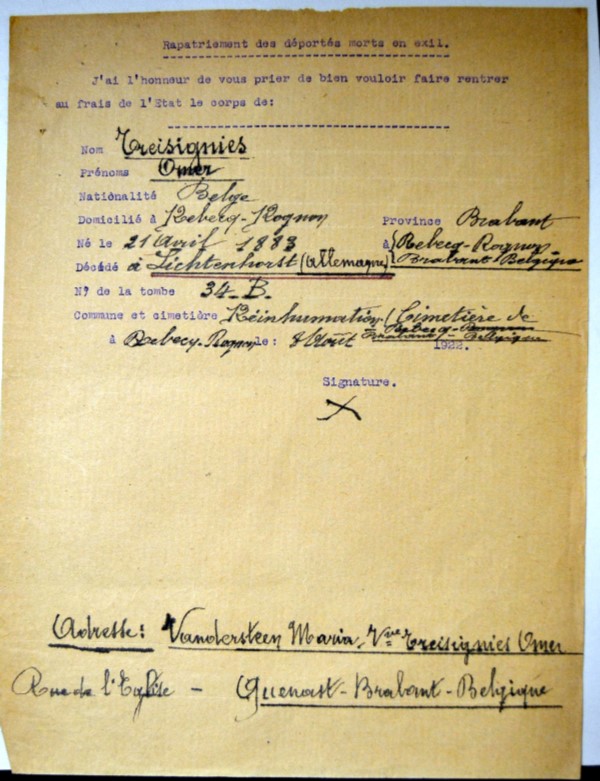 Rapatriement des déportés morts en exil.
J'ai l'honneur de vous prier de bien vouloir faire rentrer
au frais de l'Etat le corps de:
Nom Treisignies
Prénoms Omer
Nationalité Belge
Domicilié à Rebecq-Rognon Province Brabant
Né le 21 Avril 1883 à (Rebecq-Rognon
Décédé à Lichtenhorst (Allemagne) Brabant-Belgique
N° de la tombe 34-B.
Commune et cimetière Réinhumation (Cimetière de
Rebecq-Rognon
Brabant-Belgique
à Rebecq-Rognon le: 8 Août 1922.
Signature.
X
Adresse: Vandersteen Maria, Vve Treisignies Omer
Rue de l'Eglise - Quenast-Brabant-Belgique